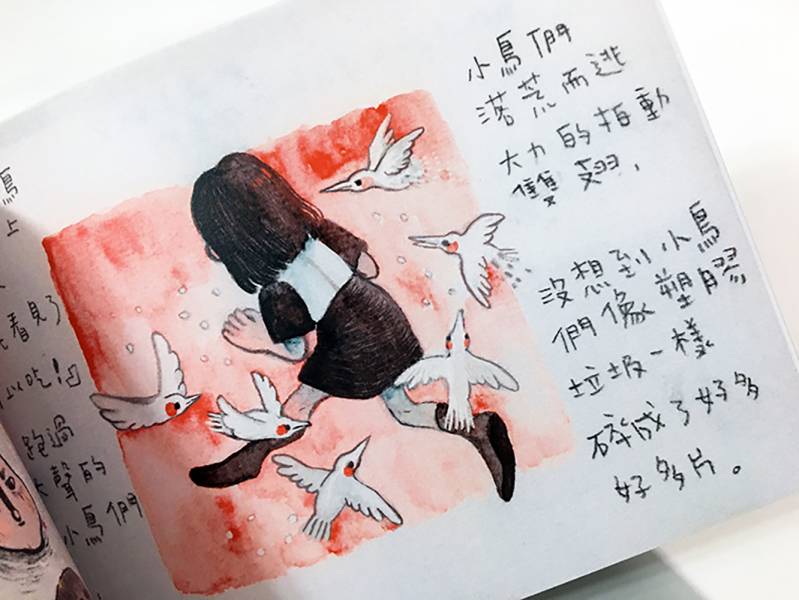 鳥
上
看見了
以吃！」
跑過
大聲的
小鳥們
小鳥們
落荒而逃
大力的拍動
雙翅，
沒想到小鳥
們像塑膠
垃圾一樣
碎成了好多
好多片。